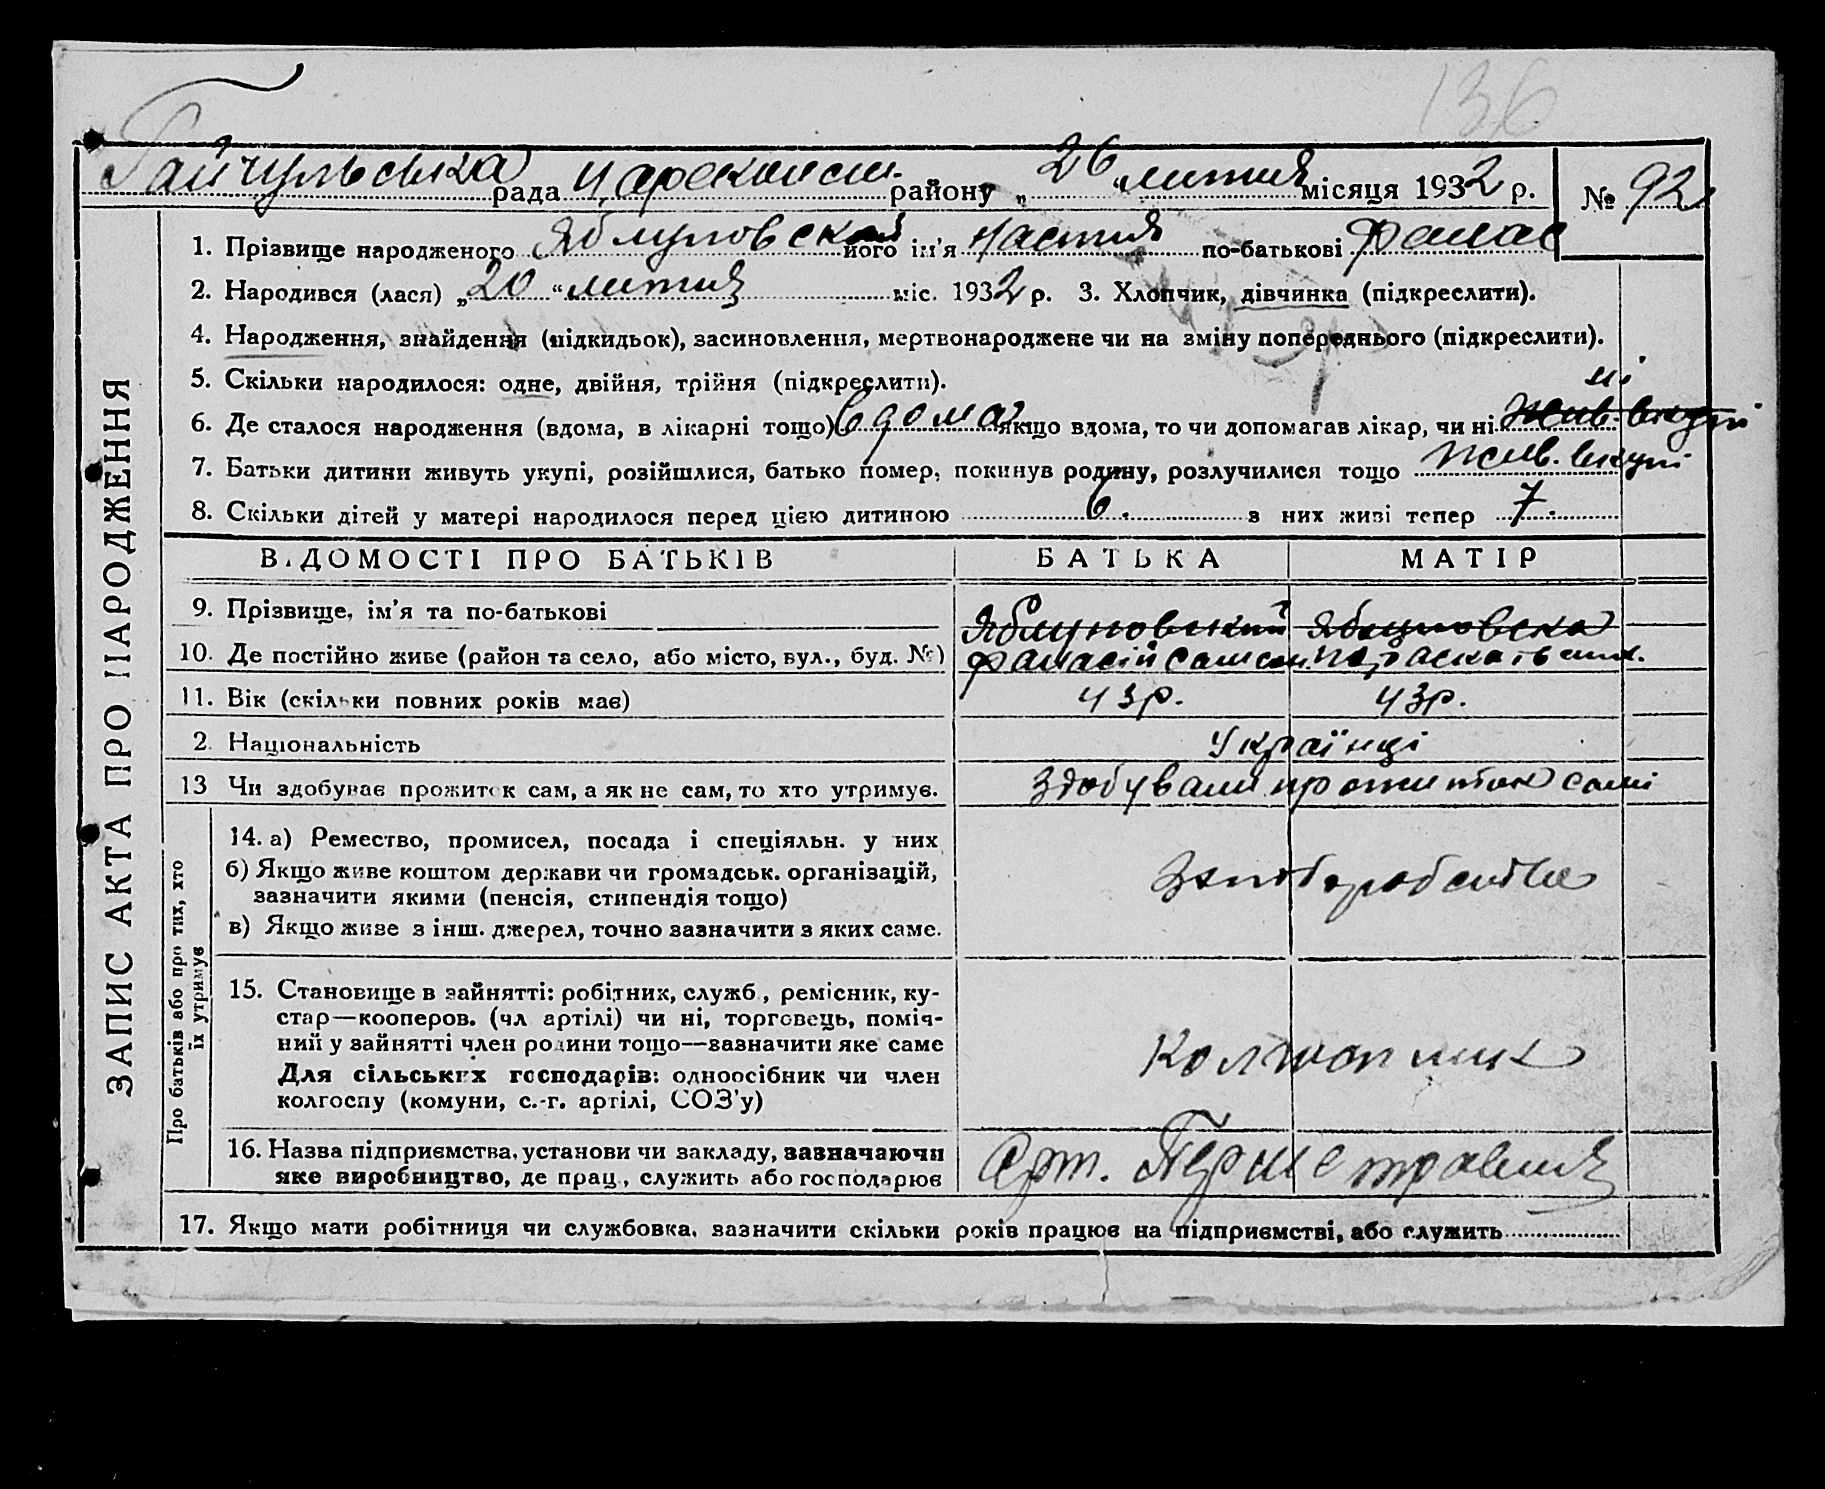 136
Гайчульська рада Цареконст. району „26“ лютия місяця 1932 р. № 92
1. Прізвище народженого Яблуновская його ім'я Настия по-батькові Фанас
2. Народився (лася) „20“ лютия міс. 1932 р. 3. Хлопчик, дівчинка (підкреслити).
4. Народження, знайдення (підкидьок), засиновлення, мертвонароджене чи на зміну попереднього (підкреслити).
5. Скільки народилося: одне, двійня, трійня (підкреслити).
ні
6. Де сталося народження (вдома, в лікарні тощо) вдома якщо вдома, то чи допомагав лікар, чи ні жив. вкупі
7. Батьки дитини живуть укупі, розійшлися, батько помер, покинув родину, розлучилися тощо жив. вкупі
8. Скільки дітей у матері народилося перед цією дитиною 6. з них живі тепер 7.
ЗАПИС АКТА ПРО НАРОДЖЕННЯ
ВІДОМОСТІ ПРО БАТЬКІВ БАТЬКА МАТІР
9. Прізвище, ім'я та по-батькові Яблуновский Яблуновска
10. Де постійно живе (район та село, або місто, вул., буд. №) Фанасій
11. Вік (скільки повних років має) 43р. 43р.
2. Національність Українці
13 Чи здобуває прожиток сам, а як не сам, то хто утримує. Здобували прожиток самі
Про батьків або про тих, хто
їх утримує
14. а) Ремество, промисел, посада і спеціяльн. у них
б) Якщо живе коштом держави чи громадськ. організацій,
зазначити якими (пенсія, стипендія тощо)
в) Якщо живе з інш. джерел, точно зазначити з яких саме.
15. Становище в зайнятті: робітник, служб., ремісник, ку-
стар—кооперов. (чл артілі) чи ні, торговець, поміч-
ний у зайнятті член родини тощо—зазначити яке саме
Для сільських господарів: одноосібник чи член
колгоспу (комуни, с.-г. артілі, СОЗ'у)
16. Назва підприємства, установи чи закладу, зазначаючи
яке виробництво, де прац., служить або господарює
Арт. Перше травня
17. Якщо мати робітниця чи службовка, зазначити скільки років працює на підприємстві, або служить